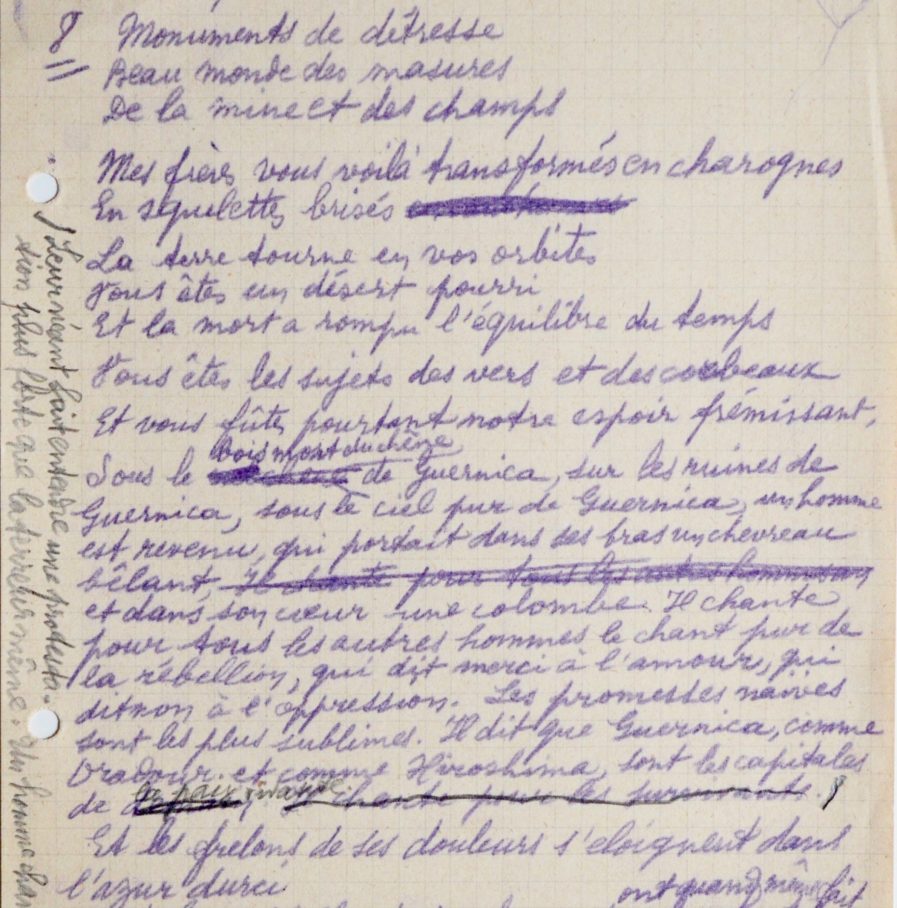 8 Monuments de détresse
Beau monde des masures
De la mine et des champs
Mes frères vous voilà transformés en charognes
En squelettes brisés
La terre tourne en vos orbites
Vous êtes un désert pourri
Et la mort a rompu l'équilibre du temps
Vous êtes les sujets des vers et des corbeaux
Et vous fûtes pourtant notre espoir frémissant,
bois mort du chêne
Sous le de Guernica, sur les ruines de
Guernica, sous le ciel pur de Guernica, un homme
est revenu, qui portait dans ses bras un chevreau
bêlant, Il chante pour tous les autres hommes
et dans son cœur une colombe. Il chante
pour tous les autres hommes le chant pur de
la rébellion, qui dit merci à l'amour, qui
dit non à l'oppression. Les promesses naïves
sont les plus sublimes. Il dit que Guernica, comme
Oradour et comme Hiroshima, sont les capitales
la paix vivante
de chante pour les survivants.
Et les frelons de ses douleurs s'eloignent dans
l'azur durci
ont quand même fait
Leur néant fait entendre une protesta-
tion plus forte que la terreur même. Un homme chan